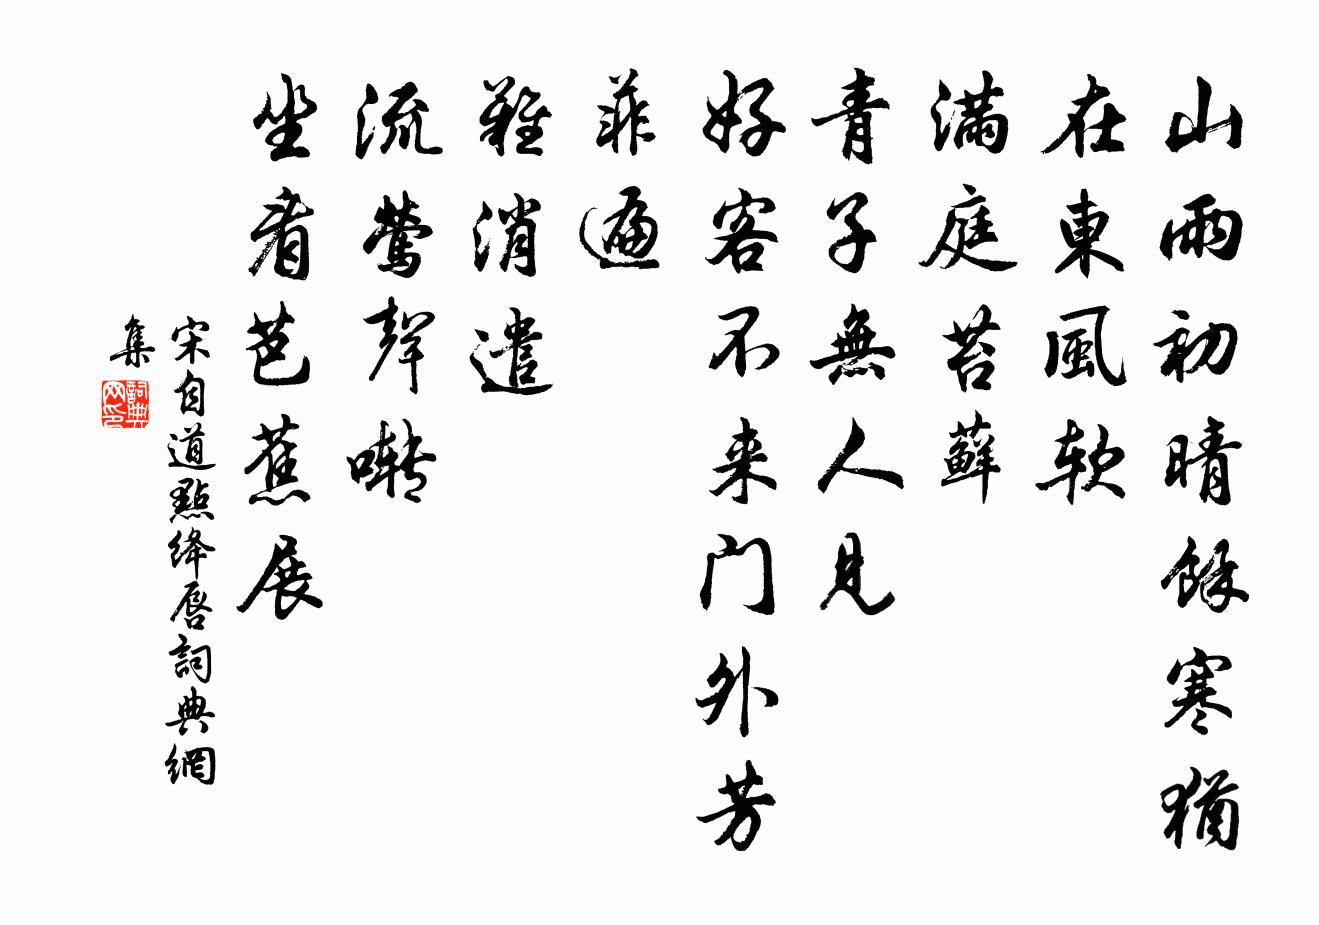 山雨初晴餘寒猶
在東風軟
滿庭苔蘚
青子無人見
好客不来门外芳
菲遍
難消遣
流鶯聲囀
坐看芭蕉展
宋自道點绛唇詞典網
集
詞典网印